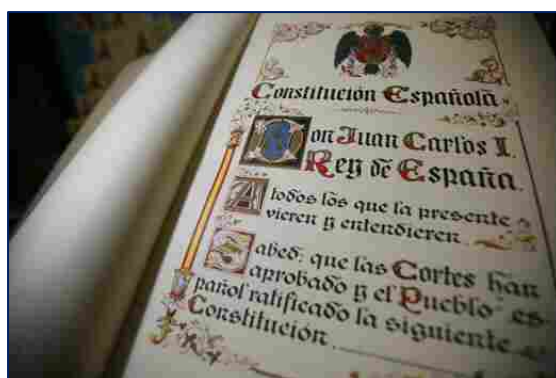 Constitución Española
Don Juan Carlos I.
Rey de España.
A todos los que la presente
vieren y entendieren
Sabed: que las Cortes han
aprobado y el Pueblo es-
pañol ratificado la siguiente
Constitución.